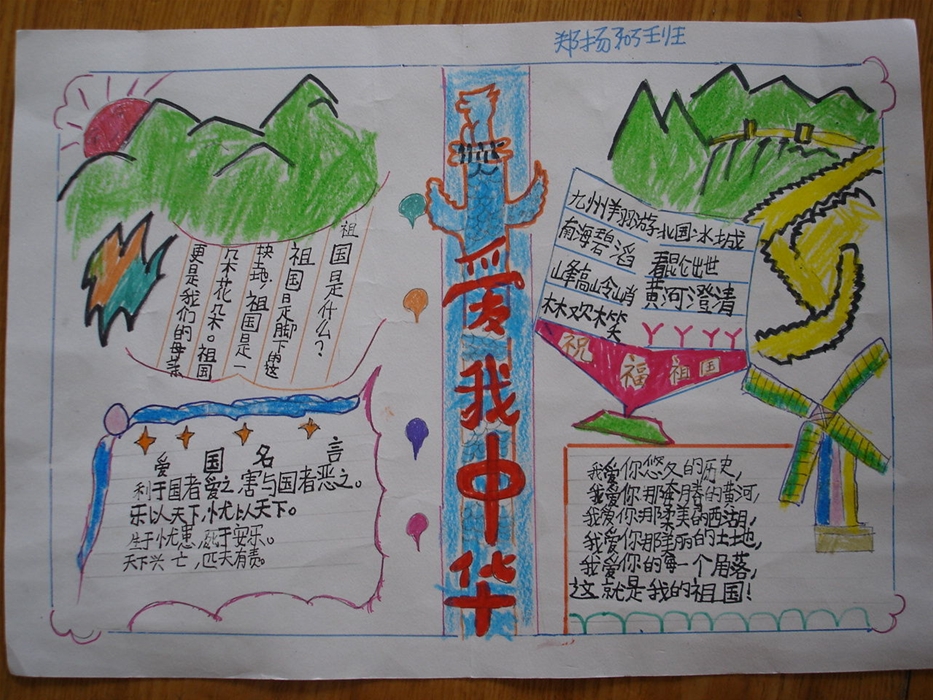 郑扬
爱我中华
祖国是什么?
祖国是脚下的这
块土地。祖国是一
朵花朵。祖国
更是我们的母亲
爱国名言
利于国者爱之,害与国者恶之。
乐以天下,忧以天下。
生于忧患,死于安乐。
天下兴亡,匹夫有责。
九州 游 北国冰城
南海碧滔 出世
山峰高 黄河澄清
林欢 笑
祝福祖国
我爱你悠久的历史,
我爱你那奔 的黄河,
我爱你那柔美的西湖,
我爱你那美丽的土地,
我爱你的每一个 落,
这就是我的祖国!